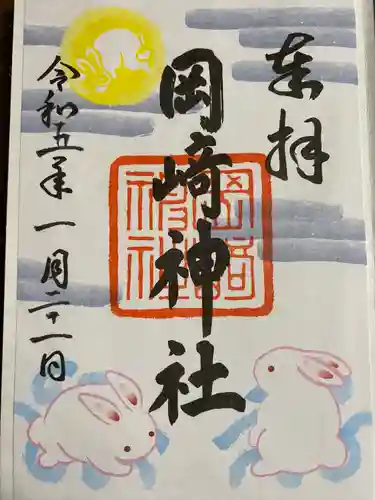 奉拝
岡﨑神社
岡崎神社
令和五年一月二十一日